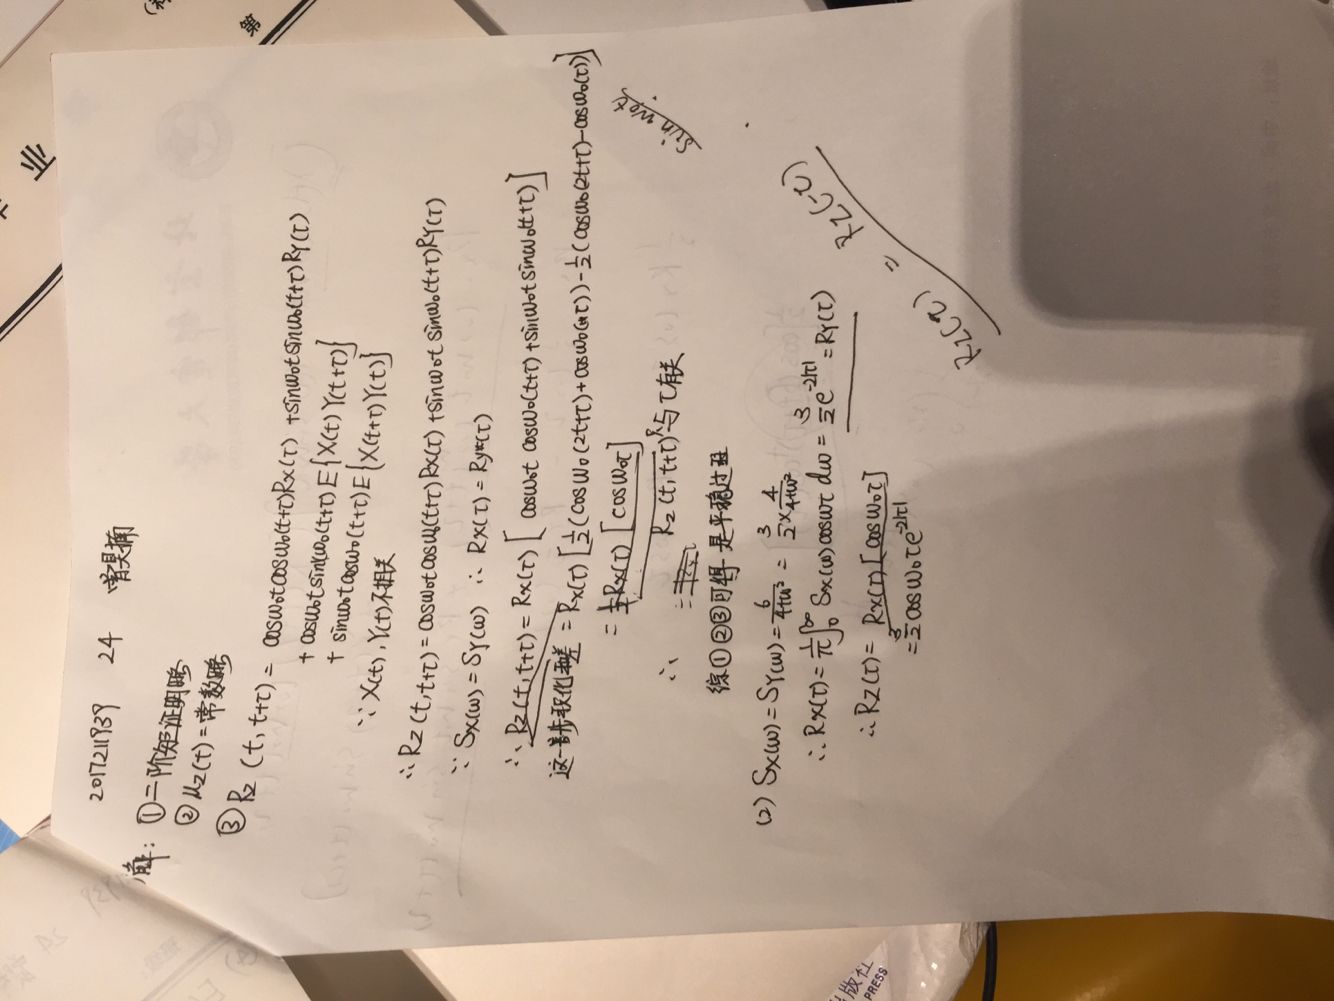 业
第
2017211939 24
解: ①二阶矩证明略
② μz(t)=常数略
③ Rz (t, t+τ) = cosω₀t cosω₀(t+τ)Rx(τ) +sinω₀t sinω₀(t+τ) Ry(τ)
+ cosω₀t sinω₀(t+τ) E{X(t) Y(t+τ)}
+ sinω₀t cosω₀(t+τ) E{X(t+τ) Y(t)}
∵ X(t), Y(t)不相关
∴ Rz (t, t+τ) = cosω₀t cosω₀(t+τ) Rx(τ) +sinω₀t sinω₀(t+τ)Ry(τ)
∵ Sx(ω) = Sy(ω) ∴ Rx(τ) = Ry(τ)
∴ Rz(t, t+τ) = Rx(τ) [ cosω₀t cosω₀(t+τ) +sinω₀t sinω₀(t+τ)]
这一步积化和差 = Rx(τ) [½(cosω₀(2t+τ)+cosω₀(τ)) - ½(cosω₀(2t+τ)-cosω₀(τ))]
= Rx(τ) [cosω₀τ]
∴ Rz (t, t+τ)只与τ有关
综①②③可得 是平稳过程
(2) Sx(ω) = Sy(ω) = 6/(4+ω²) = 3/2 × 4/(4+ω²)
∴ Rx(τ) = 1/π ∫₀^∞ Sx(ω) cosωτ dω = 3/2 e^(-2|τ|) = Ry(τ)
∴ Rz(τ) = Rx(τ) [cosω₀τ]
= 3/2 cosω₀τ e^(-2|τ|)
sin ω₀t
Rz(τ) = Rz(-τ)
版社
PRESS